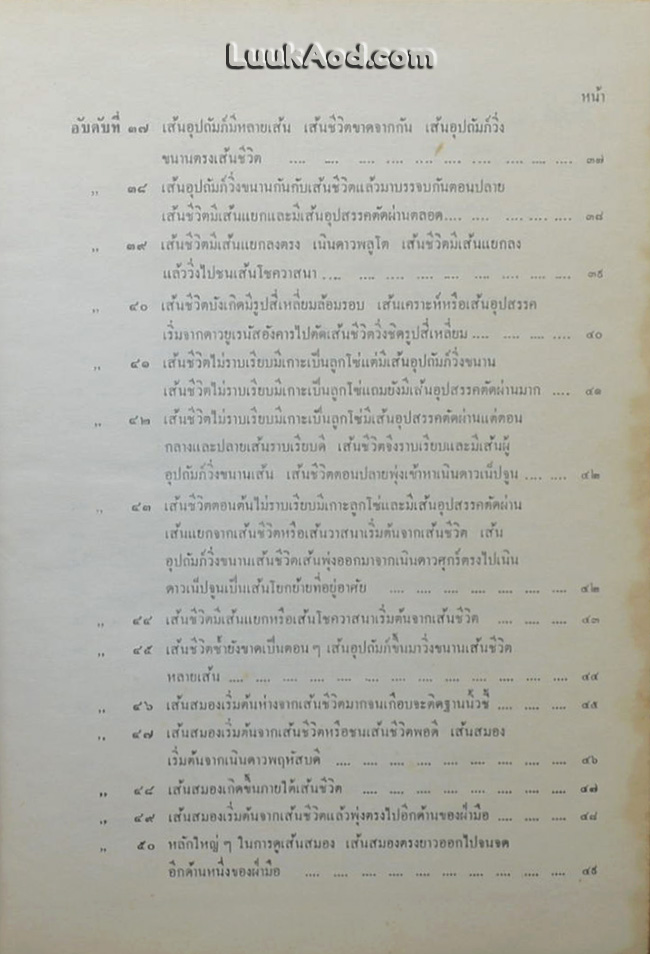 LuukAod.com
หน้า
อันดับที่ ๓๗ เส้นอุปถัมภ์มีหลายเส้น เส้นชีวิตขาดจากกัน เส้นอุปถัมภ์วิ่ง
ขนานตรงเส้นชีวิต .... .... .... .... .... .... .... .... .... .... ๓๗
,, ๓๘ เส้นอุปถัมภ์วิ่งขนานกันกับเส้นชีวิตแล้วมาบรรจบกันตอนปลาย
เส้นชีวิตมีเส้นแยกและมีเส้นอุปสรรคตัดผ่านตลอด.... .... .... .... .... ๓๘
,, ๓๙ เส้นชีวิตมีเส้นแยกลงตรง เนินดาวพลูโต เส้นชีวิตมีเส้นแยกลง
แล้ววิ่งไปชนเส้นโชควาสนา .... .... .... .... .... .... .... .... ๓๙
,, ๔๐ เส้นชีวิตบังเกิดมีรูปสี่เหลี่ยมล้อมรอบ เส้นเคราะห์หรือเส้นอุปสรรค
เริ่มจากดาวยูเรนัสอังคารไปตัดเส้นชีวิตวิ่งชิดรูปสี่เหลี่ยม .... .... .... .... ๔๐
,, ๔๑ เส้นชีวิตไม่ราบเรียบมีเกาะเป็นลูกโซ่แต่มีเส้นอุปถัมภ์วิ่งขนาน
เส้นชีวิตไม่ราบเรียบมีเกาะเป็นลูกโซ่แถมยังมีเส้นอุปสรรคตัดผ่านมาก .... ๔๑
,, ๔๒ เส้นชีวิตไม่ราบเรียบมีเกาะเป็นลูกโซ่มีเส้นอุปสรรคตัดผ่านแต่ตอน
กลางและปลายเส้นราบเรียบดี เส้นชีวิตจึงราบเรียบและมีเส้นผู้
อุปถัมภ์วิ่งขนานเส้น เส้นชีวิตตอนปลายพุ่งเข้าหาเนินดาวเน็ปจูน .... .... ๔๒
,, ๔๓ เส้นชีวิตตอนต้นไม่ราบเรียบมีเกาะลูกโซ่และมีเส้นอุปสรรคตัดผ่าน
เส้นแยกจากเส้นชีวิตหรือเส้นวาสนาเริ่มต้นจากเส้นชีวิต เส้น
อุปถัมภ์วิ่งขนานเส้นชีวิตเส้นพุ่งออกมาจากเนินดาวศุกร์ตรงไปเนิน
ดาวเน็ปจูนเป็นเส้นโยกย้ายที่อยู่อาศัย .... .... .... .... .... .... .... ๔๒
,, ๔๔ เส้นชีวิตมีเส้นแยกหรือเส้นโชควาสนาเริ่มต้นจากเส้นชีวิต .... .... .... ๔๓
,, ๔๕ เส้นชีวิตซ้ำยังขาดเป็นตอน ๆ เส้นอุปถัมภ์ขึ้นมาวิ่งขนานเส้นชีวิต
หลายเส้น .... .... .... .... .... .... .... .... .... .... .... .... .... ๔๔
,, ๔๖ เส้นสมองเริ่มต้นห่างจากเส้นชีวิตมากจนเกือบจะติดฐานนิ้วชี้ .... .... .... ๔๕
,, ๔๗ เส้นสมองเริ่มต้นจากเส้นชีวิตหรือชนเส้นชีวิตพอดี เส้นสมอง
เริ่มต้นจากเนินดาวพฤหัสบดี .... .... .... .... .... .... .... .... .... ๔๖
,, ๔๘ เส้นสมองเกิดขึ้นภายใต้เส้นชีวิต .... .... .... .... .... .... .... .... ๔๗
,, ๔๙ เส้นสมองเริ่มต้นจากเส้นชีวิตแล้วพุ่งตรงไปอีกด้านของฝ่ามือ .... .... .... ๔๘
,, ๕๐ หลักใหญ่ ๆ ในการดูเส้นสมอง เส้นสมองตรงยาวออกไปจนจด
อีกด้านหนึ่งของฝ่ามือ .... .... .... .... .... .... .... .... .... .... ๔๙